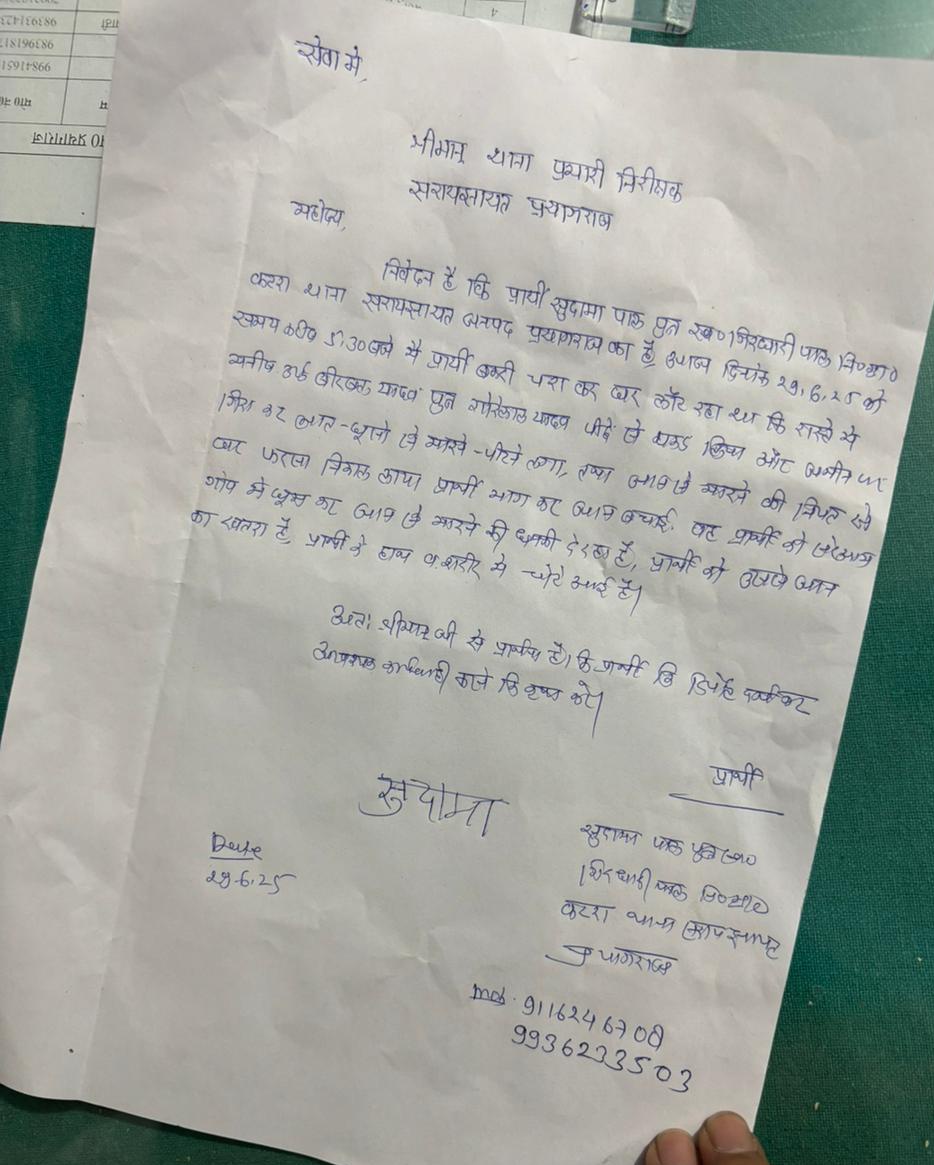 सेवा मे,
श्रीमान् थाना प्रभारी निरीक्षक
सरायममरेज प्रयागराज
महोदय,
निवेदन है कि प्रार्थी सुदामा पाल पुत्र स्व० गिरधारी पाल नि०ग्रा०
कटरा थाना जनपद प्रयागराज का है, आज दिनांक 29.6.25 को
समय करीब 5:30 बजे मै प्रार्थी बकरी चरा कर घर लौट रहा था कि रास्ते मे
मनीष उर्फ यादव पुत्र यादव पीछे से पकड लिया और जमीन पर
गिरा कर लात-घूसो से मारने-पीटने लगा, तथा जान से मारने की नियत से
घर फरसा निकाल लाया प्रार्थी भाग कर जान बचाई. वह प्रार्थी को
गांव मे घूम कर जान से मारने की धमकी दे रहा है, प्रार्थी को उससे जान
का खतरा है, प्रार्थी के हाथ व शरीर मे चोटे आई है।
अतः श्रीमान जी से प्रार्थना है। कि प्रार्थी कि रिपोर्ट दर्ज कर
आवश्यक कार्यवाही करने कि कृपा करे।
प्रार्थी
सुदामा
सुदामा पाल पुत्र स्व०
गिरधारी पाल नि०ग्रा०
Date
29.6.25
कटरा थाना
प्रयागराज
mob. 9116246708
9936233503